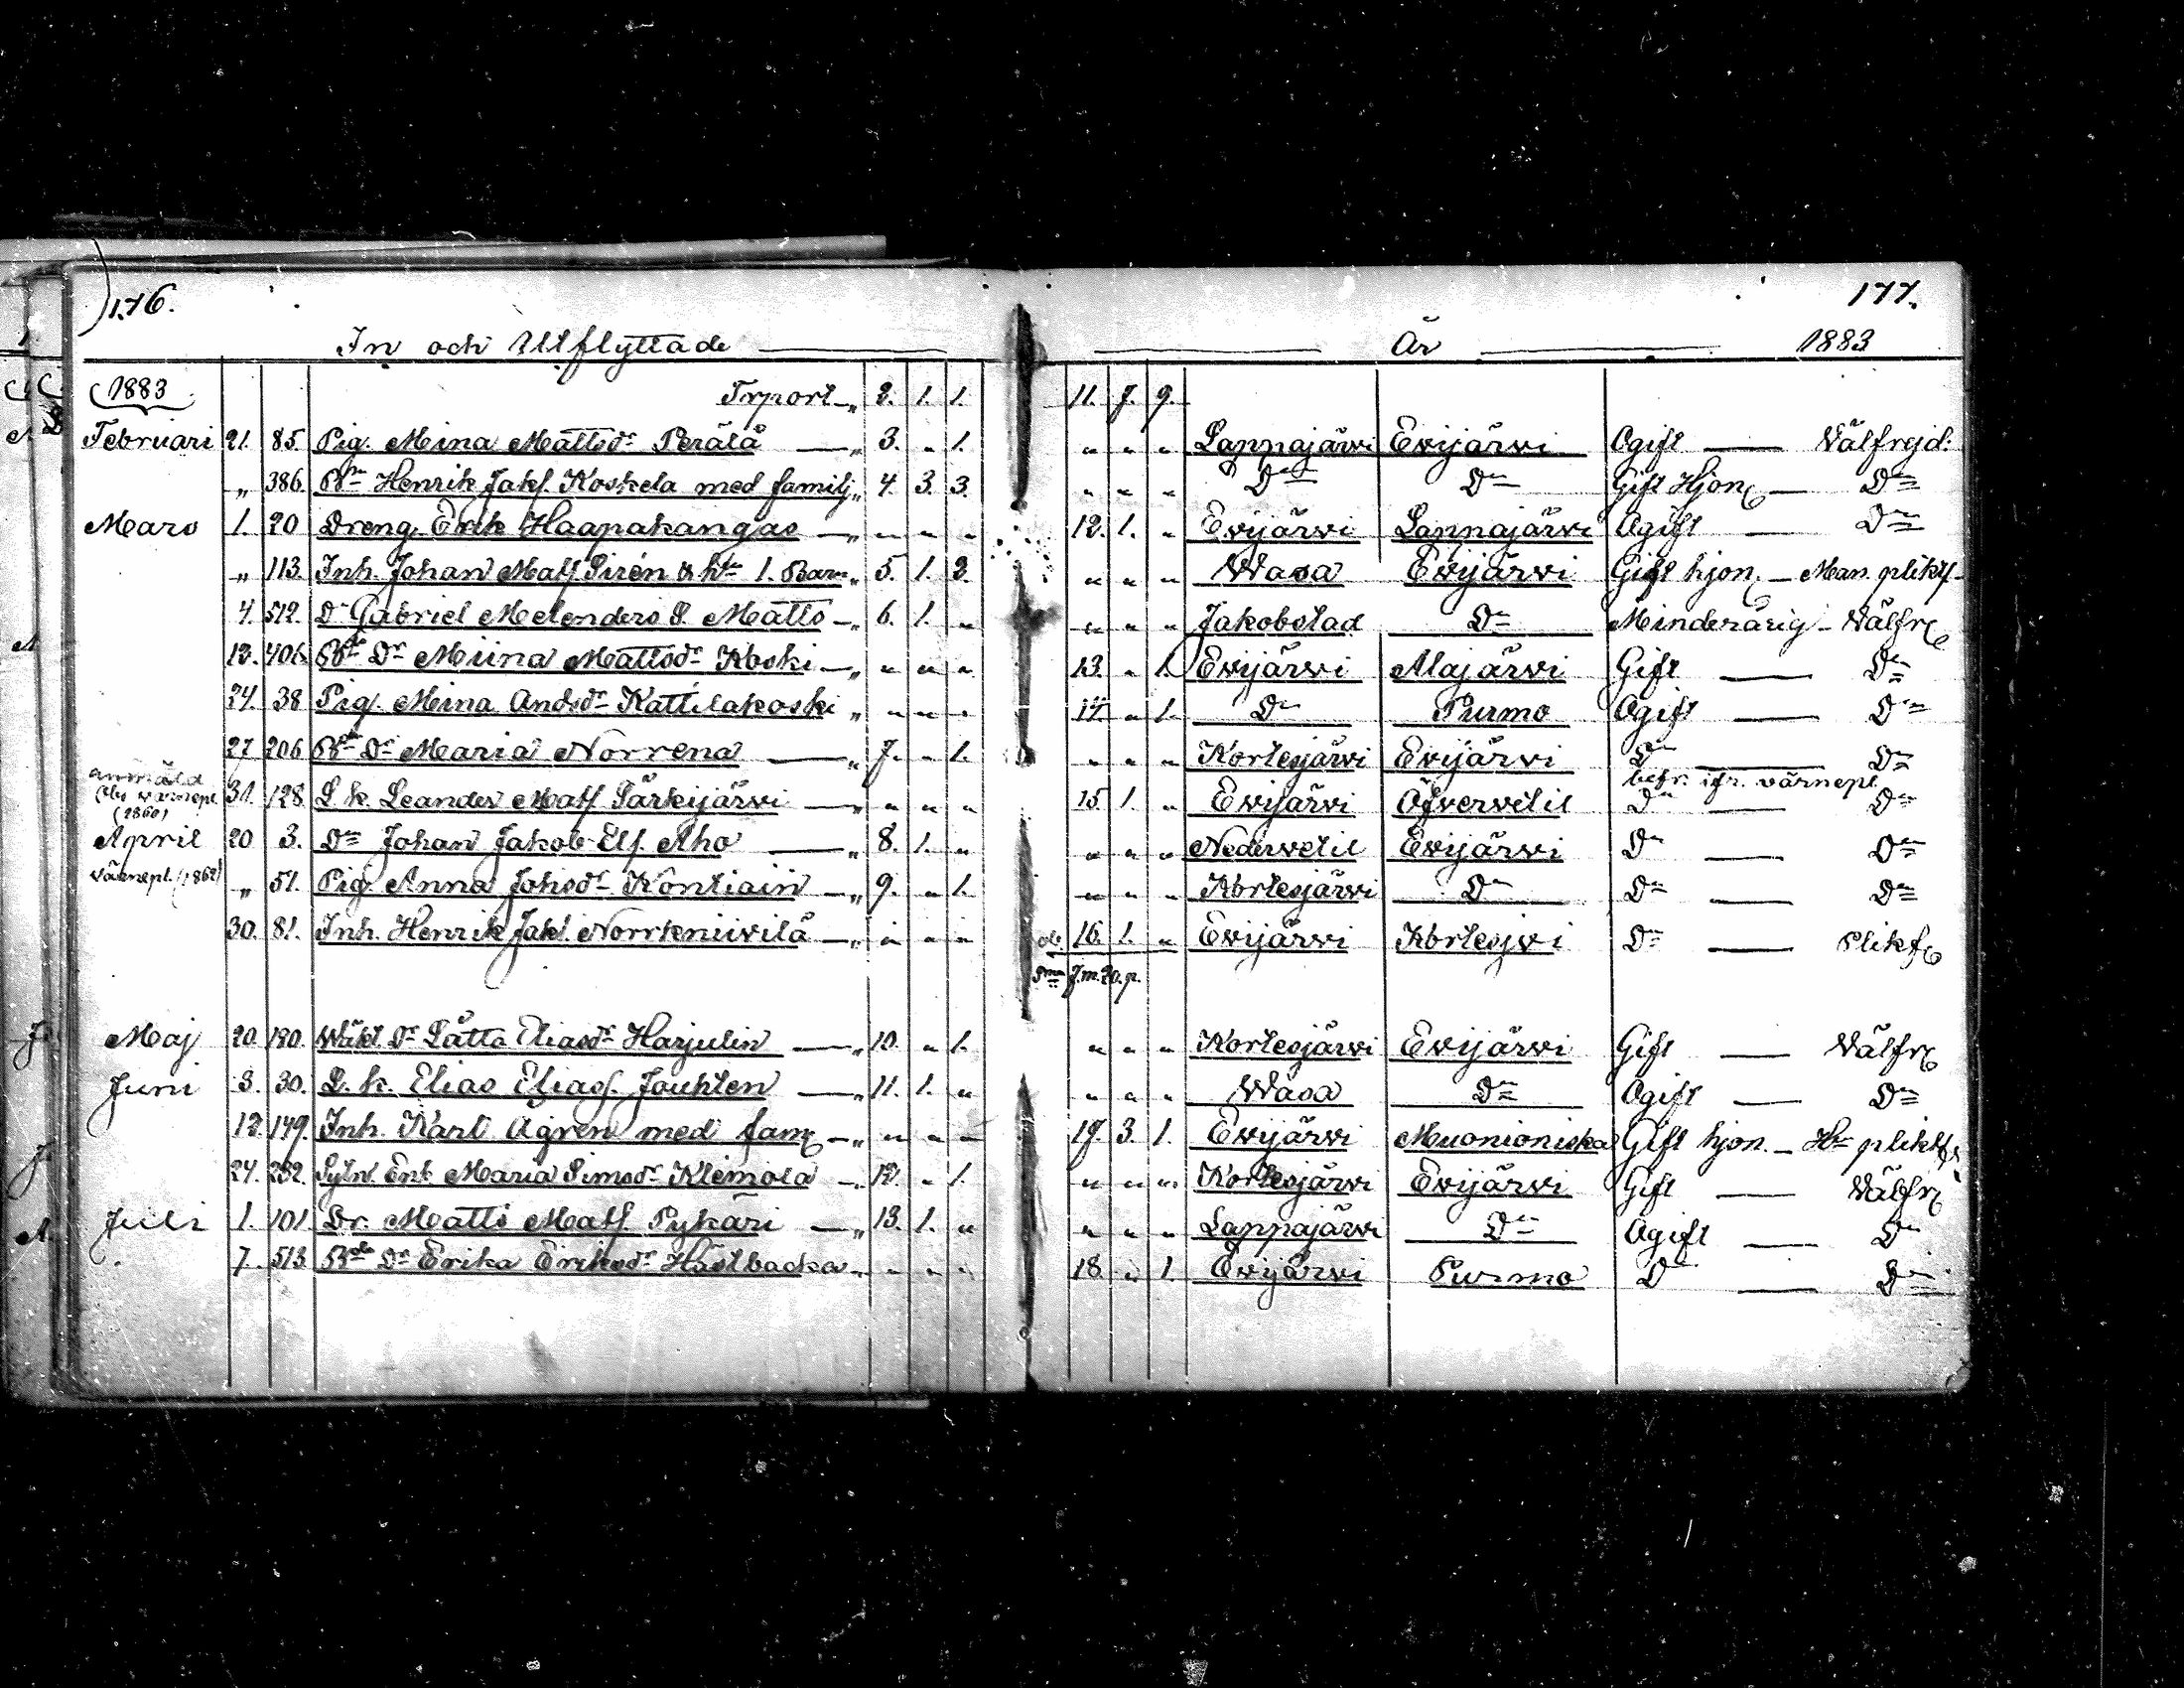 176.
177.
In och Utflyttade År 1883
1883
Trport „ 2. 1. 1. 11. 7. 9.
Februari 21. 85. Pig. Mina Mattsdr Perälä — „ 3. „ 1. „ „ „ Lappajärvi Evijärvi Ogift — Välfrejd:
„ 386. Bn Henrik Jakf. Koskela med familj „ 4. 3. 3. „ „ „ Do Do Gift Hjon — Do
Mars 1. 20 Dreng Erik Haapakangas — „ „ „ „ 12. 1. „ Evijärvi Lappajärvi Ogift — Do
„ 113. Inh. Johan Matf Sirén & h. 1. Barn „ 5. 1. 2. „ „ „ Wasa Evijärvi Gift hjon — Man. plikt
4. 512. Dr Gabriel Melenders S. Matts — „ 6. 1. „ „ „ „ Jakobstad Do Minderårig — Välfr
12. 406. Bd. Dr Miina Mattsdr Koski — „ „ „ „ 13. „ 1. Evijärvi Alajärvi Gift — Do
24. 38 Pig. Mina Andsdr Kattilakoski „ „ „ „ 14. „ 1. Do Purmo Ogift — Do
27. 206 Bd. Dr Maria Norrena — „ 7. „ 1. „ „ „ Kortesjärvi Evijärvi Do — Do
anmäld
värnepl.
(1860)
befr. ifr. värnepl.
31. 128. L. k. Leander Matf Särkijärvi — „ „ „ „ 15. 1. „ Evijärvi Öfvervetil Do Do
April 20 3. Do Johan Jakob Elf. Aho — „ 8. 1. „ „ „ „ Nedervetil Evijärvi Do — Do
värnepl. (1862)
„ 51. Pig. Anna Johsdr Kontiain — „ 9. „ 1. „ „ „ Kortesjärvi Do Do — Do
30. 81. Inh. Henrik Jakf. Norrkniivilä — „ „ „ „ 16. 1. „ Evijärvi Kortesjvi Do — Plikf
Sma 7. m. 20. p.
Maj 20. 180. Wäkt. Dr Låtta Eliasdr Harjulin — „ 10. „ 1. „ „ „ Kortesjärvi Evijärvi Gift — Välfr
Juni 3. 30. L. k. Elias Eliasf. Jouhten — „ 11. 1. „ „ „ „ Wasa Do Ogift — Do
12. 149. Inh. Karl Ågren med fam — „ „ „ „ 17. 3. 1. Evijärvi Muonioniska Gift hjon. — Hn plikt
24. 232. Sytn. Enk. Maria Simsdr Klemola — „ 12. „ 1. „ „ „ Kortesjärvi Evijärvi Gift — Välfr
Juli 1. 101. Dr. Matts Matf Pykäri — „ 13. 1. „ „ „ „ Lappajärvi Do Ogift — Do
7. 513. Bd. Dr Erika Eriksdr Hästbacka „ „ „ „ 18. „ 1. Evijärvi Purmo Do — Do